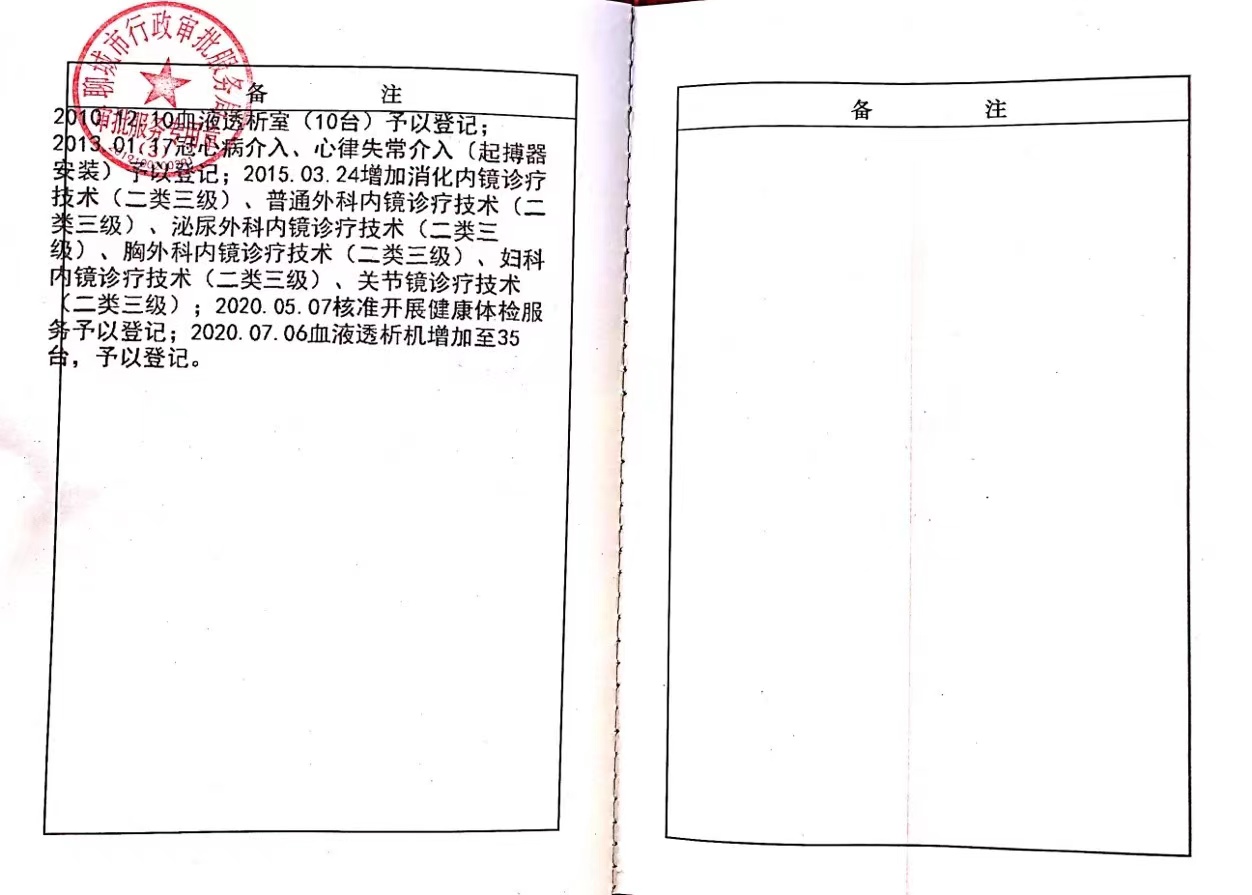 聊城市行政审批服务局
审批服务专用章
(3)
备 注
2010.12.10血液透析室（10台）予以登记；
2013.01.17冠心病介入、心律失常介入（起搏器
安装）予以登记；2015.03.24增加消化内镜诊疗
技术（二类三级）、普通外科内镜诊疗技术（二
类三级）、泌尿外科内镜诊疗技术（二类三
级）、胸外科内镜诊疗技术（二类三级）、妇科
内镜诊疗技术（二类三级）、关节镜诊疗技术
（二类三级）；2020.05.07核准开展健康体检服
务予以登记；2020.07.06血液透析机增加至35
台，予以登记。
备 注